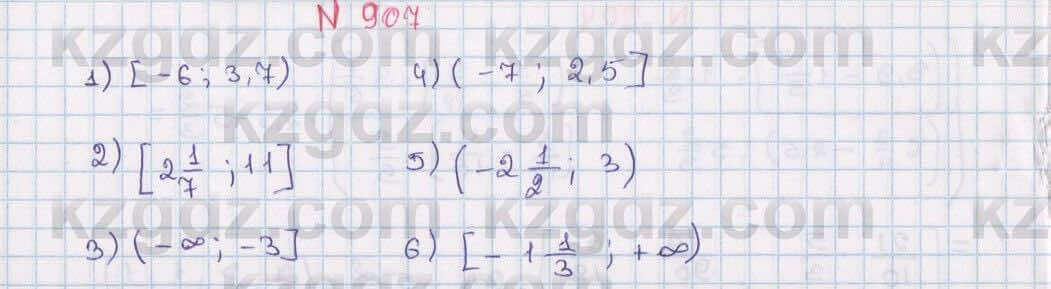 N 907
kzgdz.com kzgdz.com kz
1) [-6; 3,7) 4) (-7; 2,5]
kzgdz.com
2) [2 1/7; 11] 5) (-2 1/2; 3)
kzgdz.com kzgdz.com kz
3) (-∞; -3] 6) [-1 1/3; +∞)